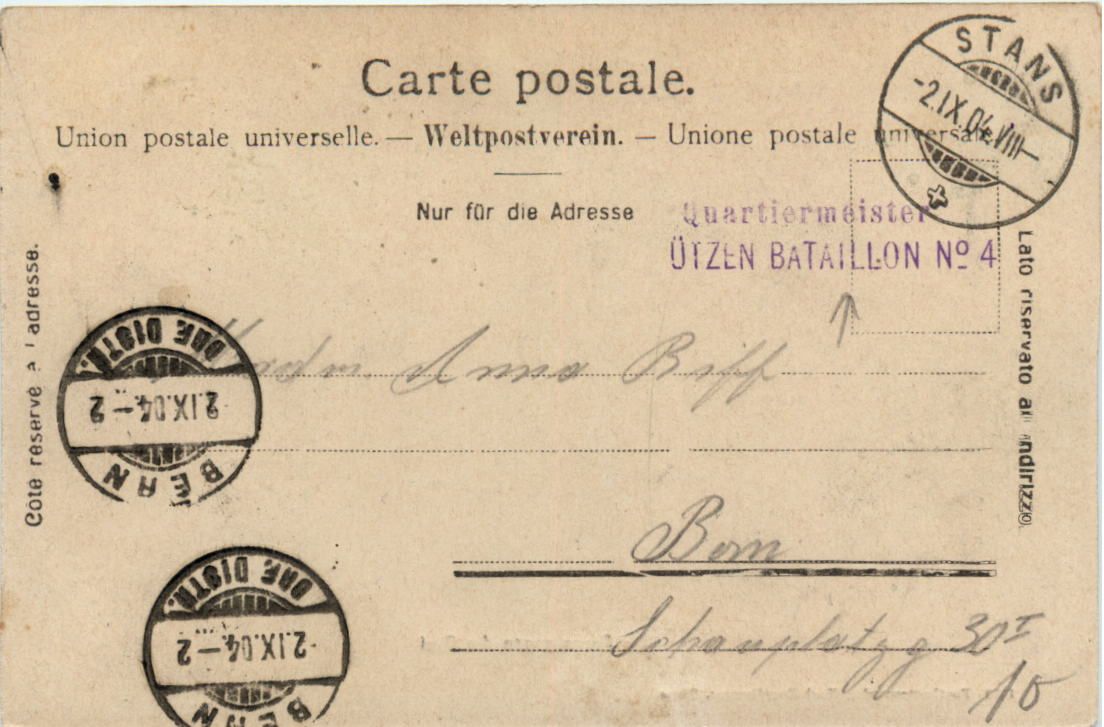 STANS
-2.IX.04.VIII-
Carte postale.
Union postale universelle. — Weltpostverein. — Unione postale universale
Nur für die Adresse
Quartiermeister
ÜTZEN BATAILLON Nº 4
Côté réservé à l'adresse.
Lato riservato all'indirizzo
Anna
BRF DISTR.
2.IX.04.-2
BERN
Bern
Schauplatzg 30 I
BRF DISTR.
2.IX.04.-2
BERN